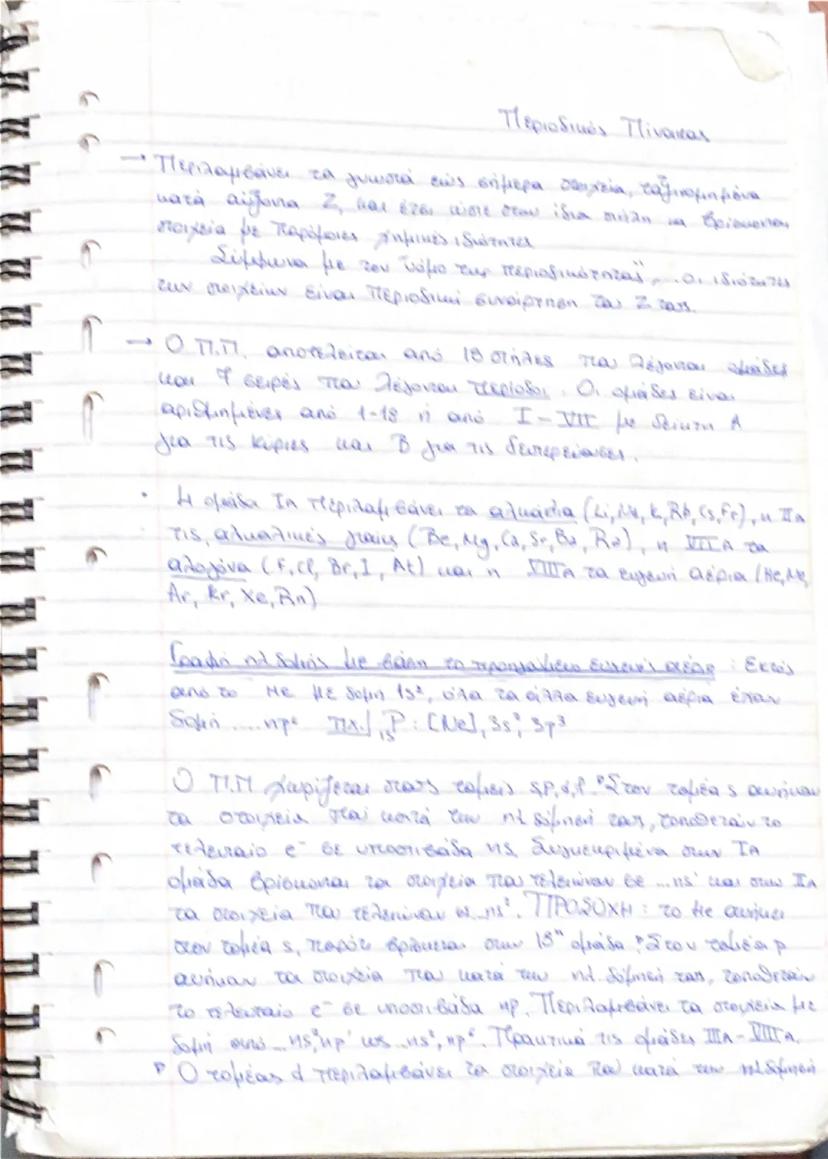 Περιοδικός Πίνακας
→ Περιλαμβάνει τα γνωστά έως σήμερα στοιχεία, ταξινομημένα
κατά αύξοντα Z, και έτσι ώστε στην ίδια στήλη να βρίσκονται
στοιχεία με παρόμοιες χημικές ιδιότητες
Σύμφωνα με τον "νόμο της περιοδικότητας", οι ιδιότητες
των στοιχείων είναι περιοδική συνάρτηση του Z τους.
→ Ο Π.Π. αποτελείται από 18 στήλες που λέγονται ομάδες
και 7 σειρές που λέγονται περίοδοι. Οι ομάδες είναι
αριθμημένες από 1-18 ή από I-VIII με δείκτη A
για τις κύριες και B για τις δευτερεύουσες.
· Η ομάδα IA περιλαμβάνει τα αλκάλια (Li, Na, K, Rb, Cs, Fr), η IIA
τις αλκαλικές γαίες (Be, Mg, Ca, Sr, Ba, Ra), η VIIA τα
αλογόνα (F, Cl, Br, I, At) και η VIIIA τα ευγενή αέρια (He, Ne,
Ar, Kr, Xe, Rn)
Γραφή ηλ δομής με βάση το προηγούμενο ευγενές αέριο : Εκτός
από το He με δομή 1s², όλα τα άλλα ευγενή αέρια έχουν
δομή ....np⁶ πχ. ₁₅P : [Ne], 3s², 3p³
Ο Π.Π χωρίζεται στους τομείς s,p,d,f. Στον τομέα s ανήκουν
τα στοιχεία που κατά την ηλ δόμησή τους, τοποθετούν το
τελευταίο e⁻ σε υποστιβάδα ns. Συγκεκριμένα στην IA
ομάδα βρίσκονται τα στοιχεία που τελειώνουν σε ...ns¹ και στην IIA
τα στοιχεία που τελειώνουν σε ...ns². ΠΡΟΣΟΧΗ : το He ανήκει
στον τομέα s, παρότι βρίσκεται στην 18η ομάδα. Στον τομέα p
ανήκουν τα στοιχεία που κατά την ηλ. δόμησή τους, τοποθετούν
το τελευταίο e⁻ σε υποστιβάδα np. Περιλαμβάνει τα στοιχεία με
δομή από ...ns², np¹ ως ...ns², np⁶. Πρακτικά τις ομάδες IIIA-VIIIA.
Ο τομέας d περιλαμβάνει τα στοιχεία που κατά την ηλ δόμησή